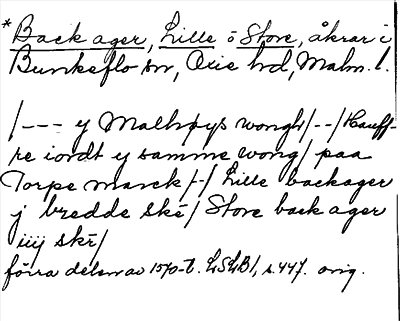 *Back ager, Lille o Store, åkrar i
Bunkeflo sn, Oxie hd, Malm. l.
/--- y Malhøys wongh/--/Hauff-
re iordt y samme wong/ paa
Torpe marck/-/ Lille backager
j bredde ske/ Store back ager
iiij ske/
förra delen av 1570-t. LSLB1, s. 447. orig.